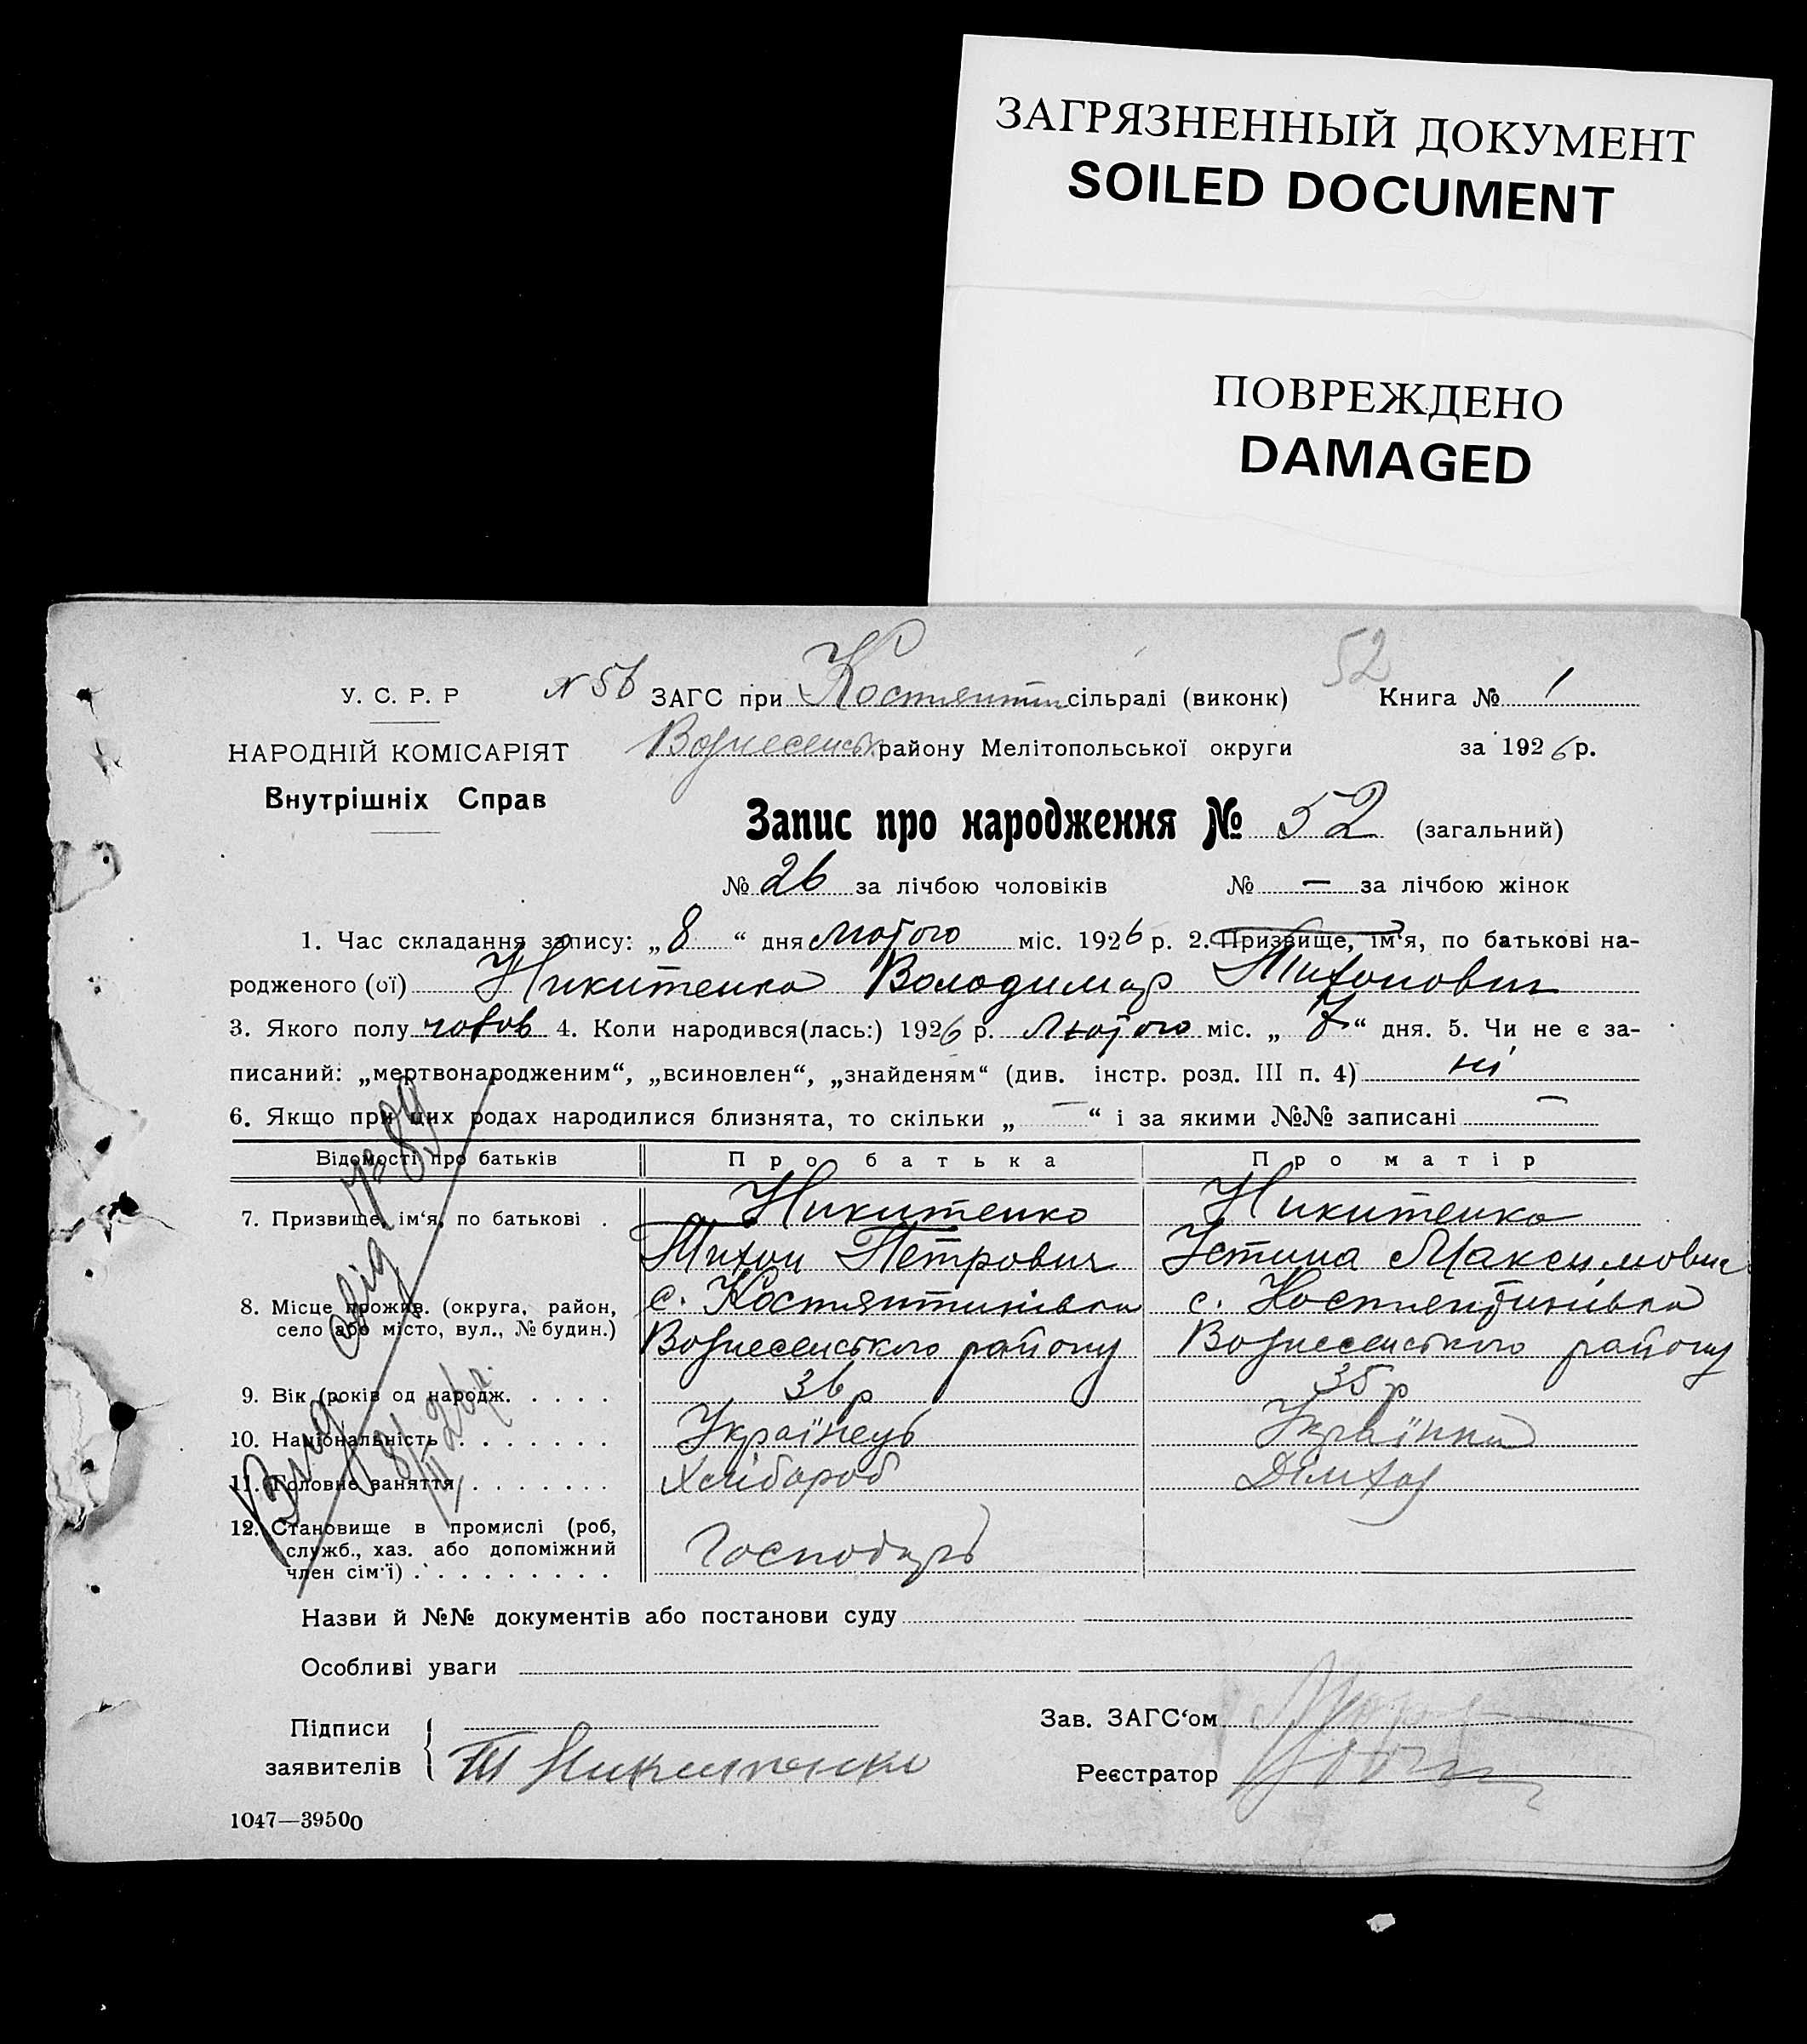 ЗАГРЯЗНЕННЫЙ ДОКУМЕНТ
SOILED DOCUMENT
ПОВРЕЖДЕНО
DAMAGED
52
У. С. Р. Р
N 56 ЗАГС при Костянтин сільраді (виконк) Книга № 1
НАРОДНІЙ КОМІСАРІЯТ
Вознесенськ району Мелітопольської округи за 1926 р.
Внутрішніх Справ
Запис про народження № 52 (загальний)
№ 26 за лічбою чоловіків № — за лічбою жінок
1. Час складання запису: „8“ дня лютого міс. 1926 р. 2. Призвище, ім‘я, по батькові на-
родженого (ої) Никитенко Володимир Тихонович
3. Якого полу чолов 4. Коли народився(лась:) 1926 р. Лютого міс. „7“ дня. 5. Чи не є за-
писаний: „мертвонародженим“, „всиновлен“, „знайденям“ (див. інстр. розд. III п. 4) ні
6. Якщо при цих родах народилися близнята, то скільки „—“ і за якими №№ записані —
Відомості про батьків Про батька Про матір
7. Призвище, ім‘я, по батькові . Никитенко Никитенко
Тихон Петрович Устина Максимовна
8. Місце прожив. (округа, район, с. Костянтинівка с. Костянтинівка
село або місто, вул., № будин.) Вознесенського району Вознесенського району
9. Вік (років од народж. . . . . 36 р 35 р
10. Національність . . . . . . . Українець Українка
11. Головне заняття . . . . . . . Хлібороб Дімхоз
12. Становище в промислі (роб,
служб., хаз. або допоміжний Господарь
член сім‘ї) . . . . . . . . . .
Вид свід № 89
8/II 26 р.
Назви й №№ документів або постанови суду
Особливі уваги
Підписи Зав. ЗАГС‘ом
заявителів Т Никитенко Реєстратор
1047—39500